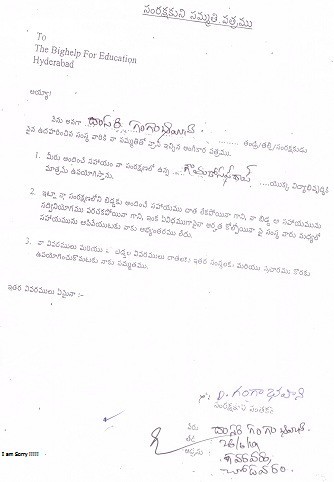 సంరక్షకుని సమ్మతి పత్రము
To
The Bighelp For Education
Hyderabad
అయ్యా!
నేను అనగా దాసరి గంగాభవాని తండ్రి/తల్లి/సంరక్షకుడు
పైన ఉదహరించిన సంస్థ వారికి నా సమ్మతితో వ్రాసి ఇచ్చిన అంగీకార పత్రము.
1. మీరు అందించే సహాయం నా సంరక్షణలో ఉన్న యొక్క విద్యాభివృద్ధికి
మాత్రమే ఉపయోగిస్తాను.
2. ఇట్లా నా సంరక్షణలోని బిడ్డకు అందించే సహాయము దాత లేకపోయినా గాని, నా బిడ్డ ఆ సహాయమును
సద్వినియోగము పరచకపోయినా గాని, ఇంక ఏవిధముగానైనా అర్హత కోల్పోయినా పై సంస్థ వారు మధ్యలో
సహాయమును ఆపివేయుటకు నాకు అభ్యంతరము లేదు.
3. నా వివరములు మరియు బిడ్డల వివరములు దాతలకు ఇతర సంస్థలకు మరియు ప్రచారము కొరకు
ఉపయోగించుకొనుటకు నాకు సమ్మతము.
ఇతర వివరములు ఏమైనా :-
D. గంగాభవాని
సంరక్షకుని సంతకం
పేరు దాసరి గంగాభవాని
తేది
అడ్రసు :
చోడవరం
I am Sorry !!!!!